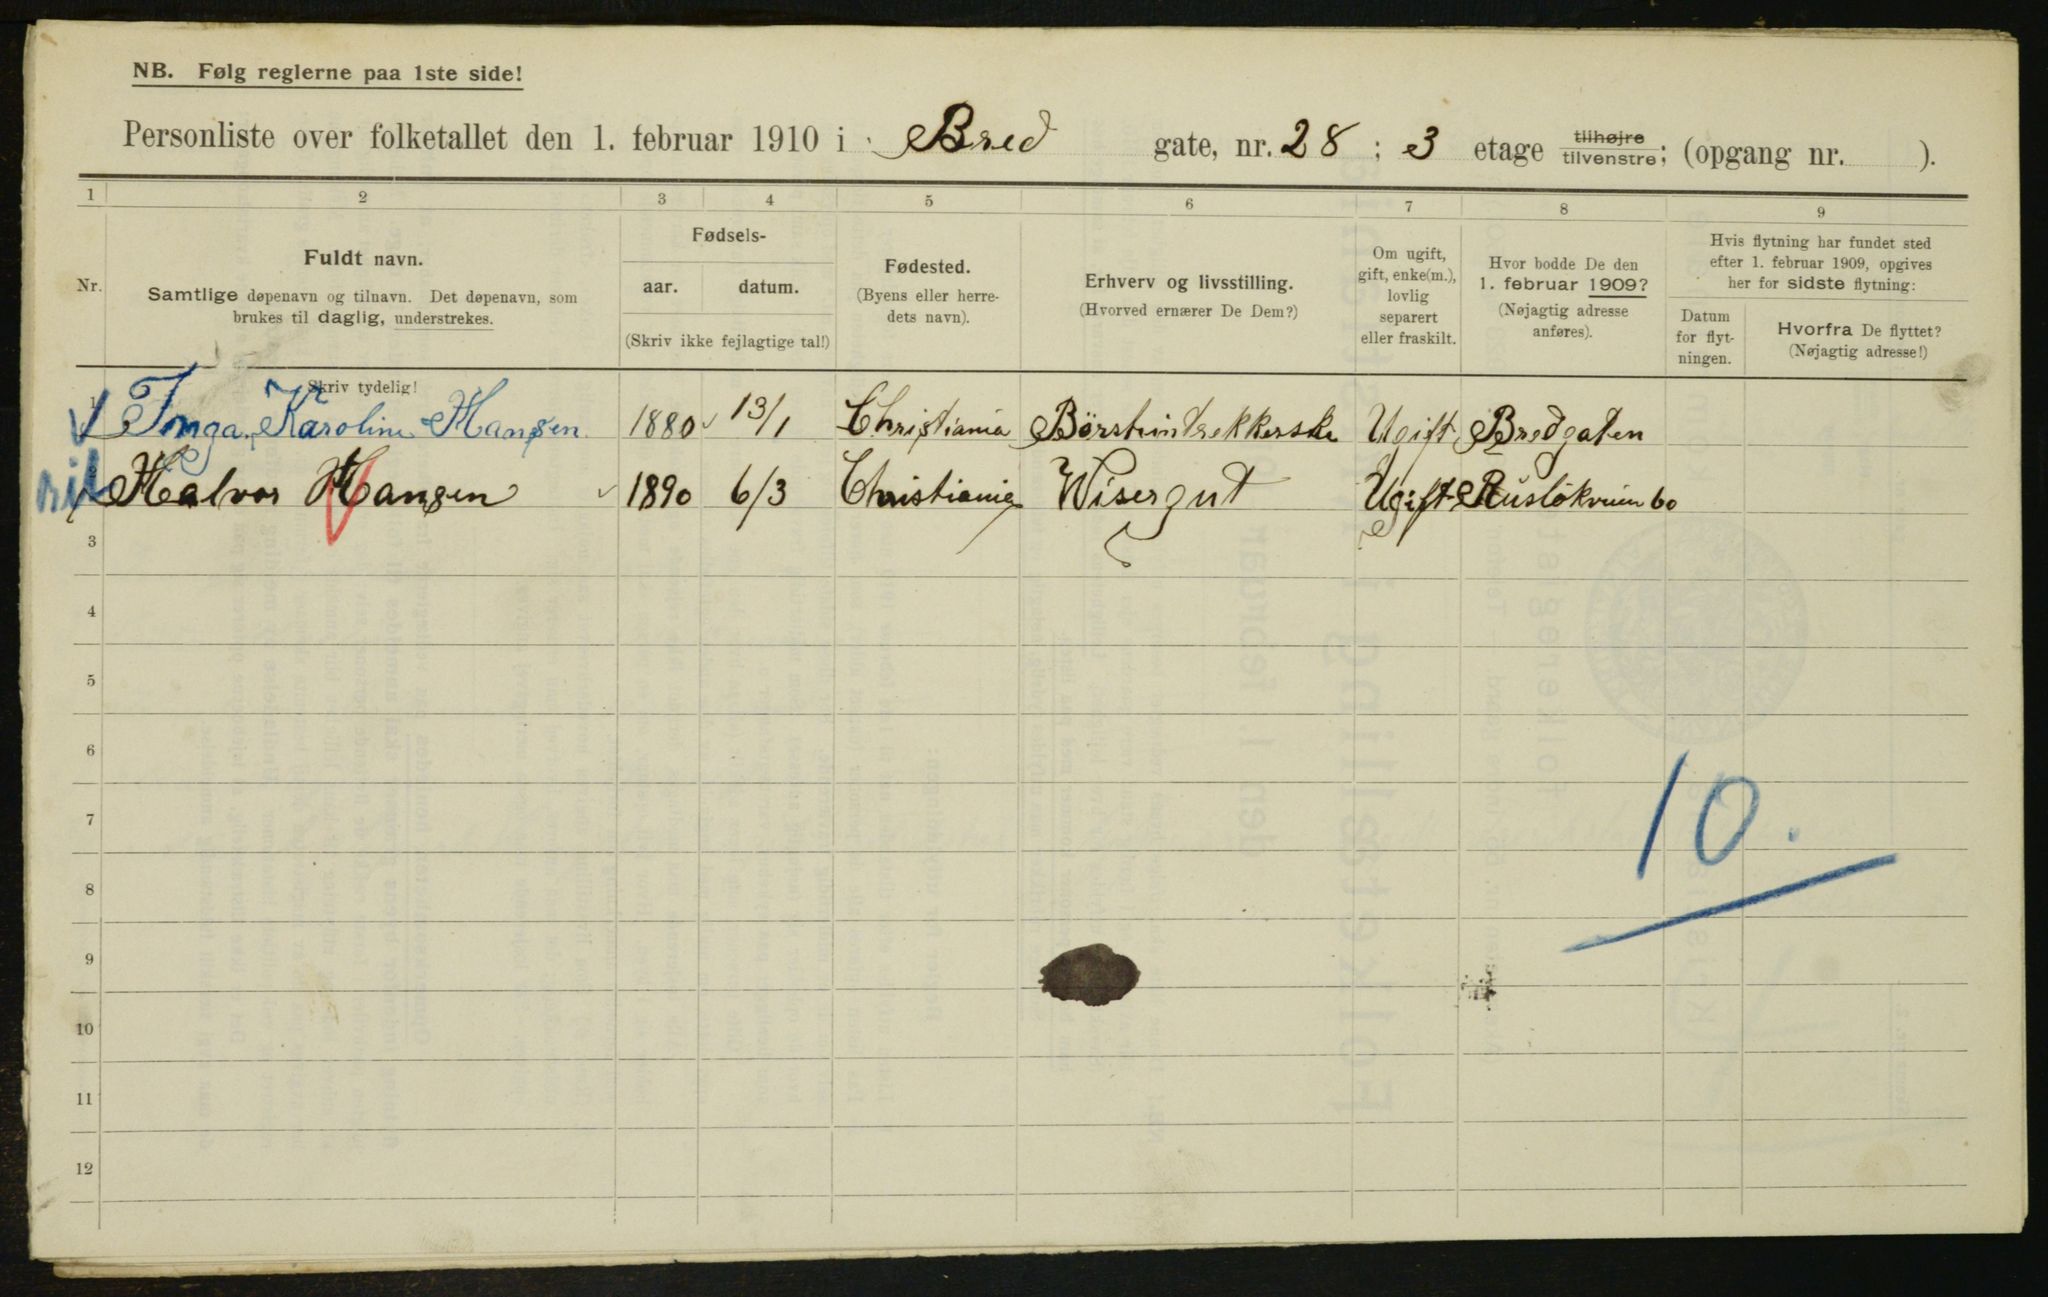 NB. Følg reglerne paa 1ste side!
Personliste over folketallet den 1. februar 1910 i Bred gate, nr. 28 ; 3 etage tilhøjre tilvenstre; (opgang nr. ).
1 2 3 4 5 6 7 8 9
Nr.
Fuldt navn.
Samtlige døpenavn og tilnavn. Det døpenavn, som
brukes til daglig, understrekes.
Skriv tydelig!
Fødsels-
aar. datum.
(Skriv ikke fejlagtige tal!)
Fødested.
(Byens eller herre-
dets navn).
Erhverv og livsstilling.
(Hvorved ernærer De Dem?)
Om ugift,
gift, enke(m.),
lovlig
separert
eller fraskilt.
Hvor bodde De den
1. februar 1909?
(Nøjagtig adresse
anføres).
Hvis flytning har fundet sted
efter 1. februar 1909, opgives
her for sidste flytning:
Datum
for flyt-
ningen.
Hvorfra De flyttet?
(Nøjagtig adresse!)
1 Inga Karoline Hansen 1880 13/1 Christiania Børsteindrekkerske Ugift Bredgaten
Halvor Hansen 1890 6/3 Christiania Wisergut Ugift Rusløkveien 60
3
4
5
6
7
8
9
10
11
12
10.